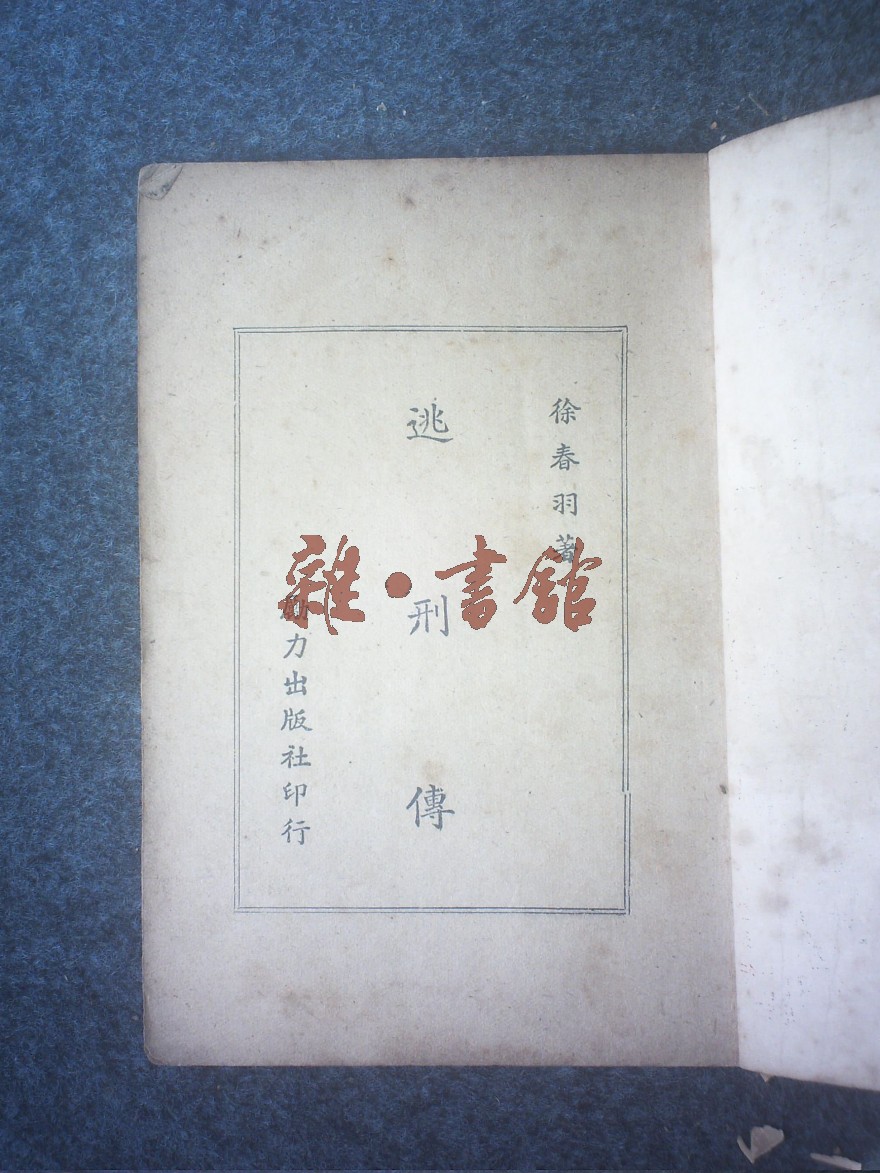 徐春羽著
逃刑傳
勵力出版社印行
雜·書館